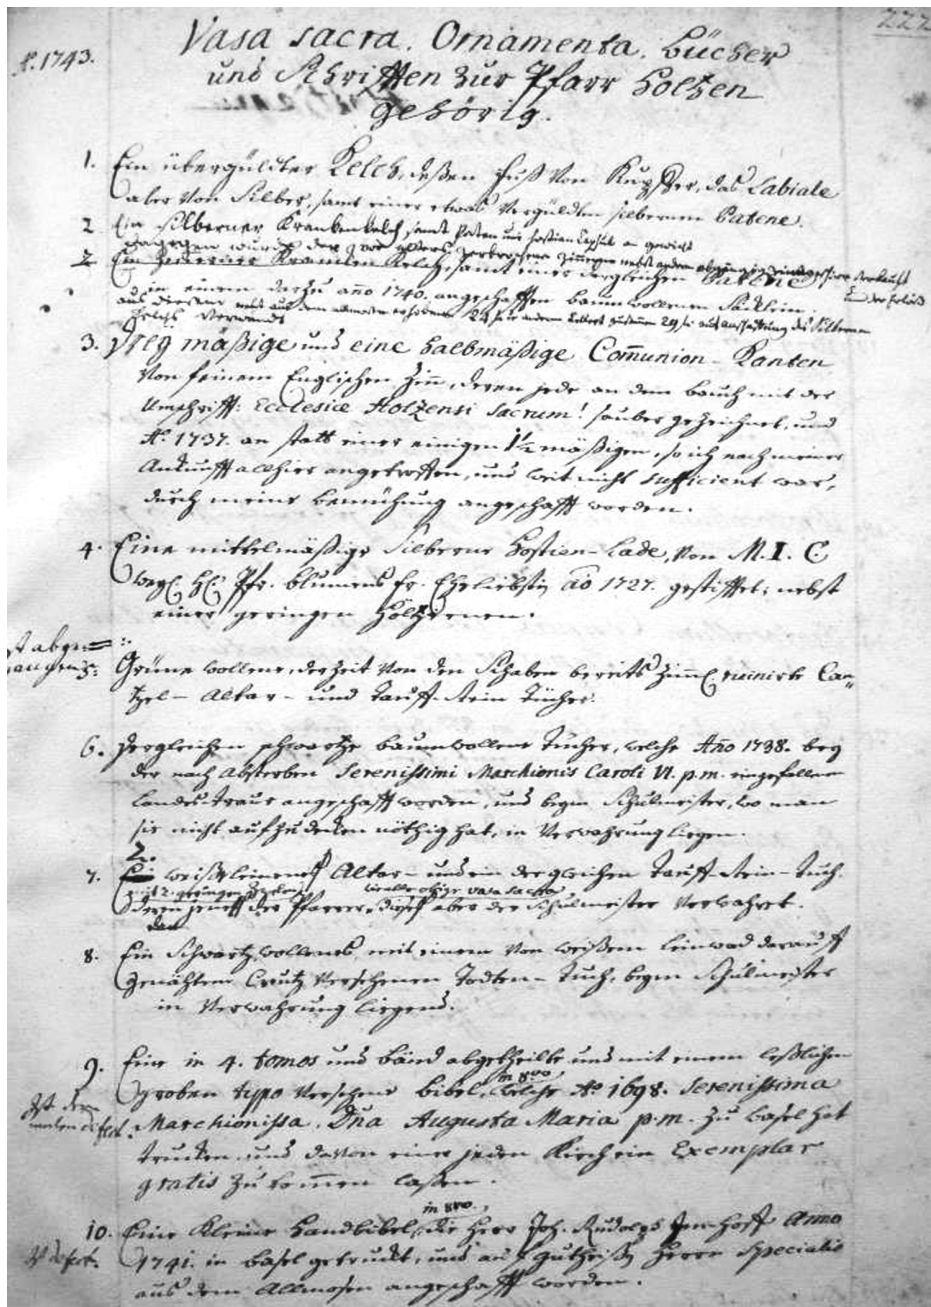 222
A. 1743.
Vasa sacra. Ornamenta. Bücher
und Schrifften zur Pfarr Holtzen
gehörig.
1. Ein übergüldter Kelch, deßen Fuß von Kupffer, das Labiale
aber von Silber, samt einer etwas vergüldten silbernen Patene.
2. Ein silberner Krankenkelch samt Paten und Hostien Capsul
2. Ein zinnerner Krancken Kelch, samt einer dergleichen Patene
in einem darzu año 1740. angeschafften baumwollenen Säcklein.
3. Drey mäßige und eine halbmäßige Com̄union-Kanten
von feinem Englischen Zinn, deren jede an dem Bauch mit der
Umschrifft: Ecclesiæ Holzensi Sacrum! sauber gezeichnet, und
Aº. 1737. an statt einer einigen 1½ mäßigen, so ich nach meiner
Ankunfft allhier angetroffen, und weit nicht sufficient war,
durch meine Bemühung angeschafft worden.
4. Eine mittelmäßige Silberne Hostien-Lade, von M. I. C.
Pfr. Blumens Eheliebstin aõ 1727. gestifftet; nebst
einer geringen höltzernen.
ist abge=
gangen
5. Grüne wollene, derzeit von den Schaben bereits ziml. ruinirte Can„
tzel- Altar- und Tauff-stein Tücher.
6. Dergleichen schwartze baumwollene Tücher, welche Año 1738. bey
der nach Absterben Serenissimi Marchionis Caroli VI. p. m. eingefallenen
Landes-Traur angeschafft worden, und beym Schulmeister, wo man
sie nicht aufzudecken nöthig hat, in Verwahrung liegen.
2.
7. Ein weißleinenes Altar- und ein dergleichen Tauff-stein-Tuch
wie alle obige vasa sacra
deren jenes der Pfarrer, dieses aber der Schulmeister verwahrt.
8. Ein Schwartz wollenes, mit einem von weißem Leinwad darauff
genähtem Creutz versehenen Todten-Tuch, beym Schulmeister
in Verwahrung liegend.
9. Eine in 4. tomos und Bänd abgetheilte und mit einem leßlichen
in 8vo
groben typo versehene Bibel, welche Aº. 1698. Serenissima
Marchionissa. Dña Augusta Maria p. m. zu Basel hat
trucken, und davon einer jeden Kirch ein Exemplar
gratis zukom̄en lassen.
in 8vo.
10. Eine kleine Handbibel, die Herr Joh. Rudolph Imhoff Anno
1741. in Basel getruckt, und auf Gutheißen Herrn Specialis
aus dem Allmosen angeschafft worden.